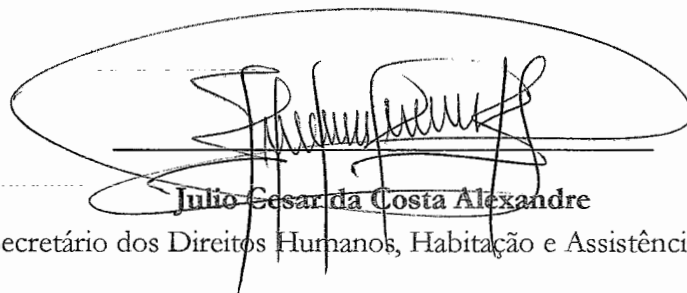 Julio Cesar da Costa Alexandre
ecretário dos Direitos Humanos, Habitação e Assistênci